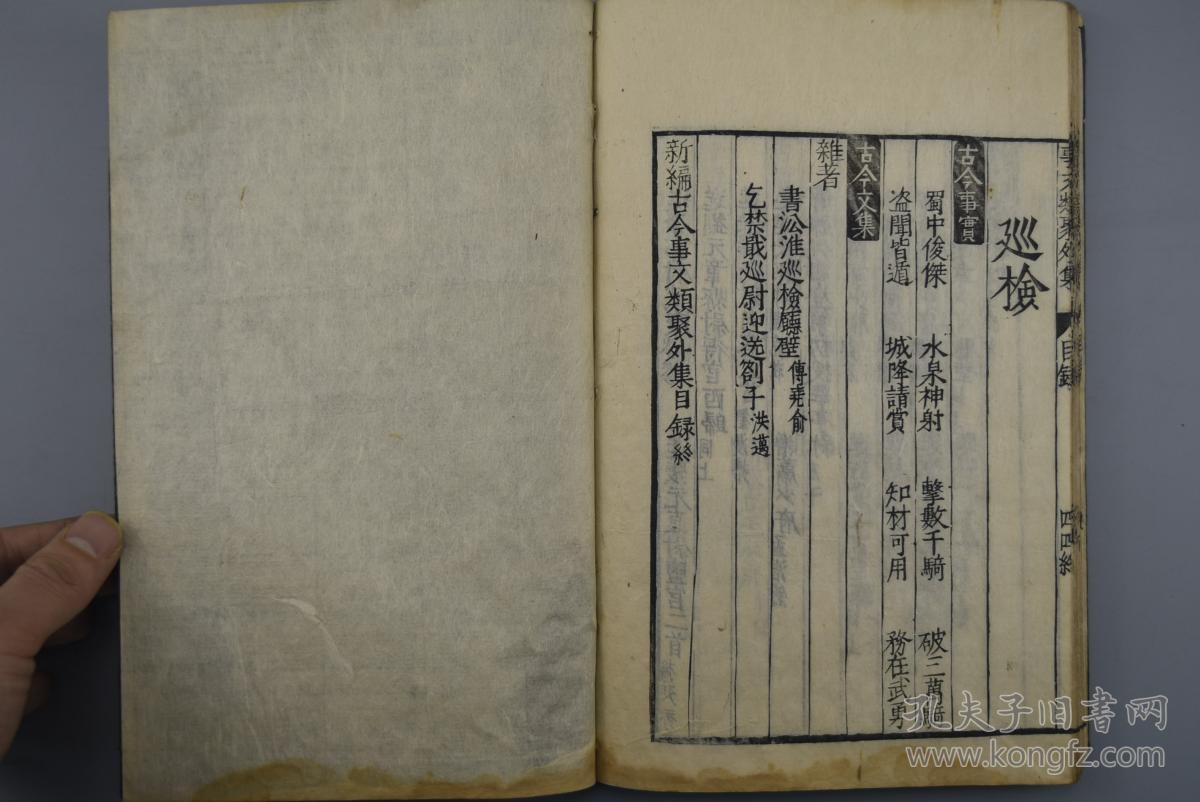 事文類聚外集 目録 四四終
廵檢
古今事實
蜀中俊傑 水泉神射 擊數千騎 破三萬騎
盗聞皆遁 城降請賞 知材可用 務在武勇
古今文集
雜著
書㳂淮廵檢廳壁 傅堯俞
乞禁戢廵尉迎送劄子 洪邁
新編古今事文類聚外集目録終
孔夫子旧书网
www.kongfz.com